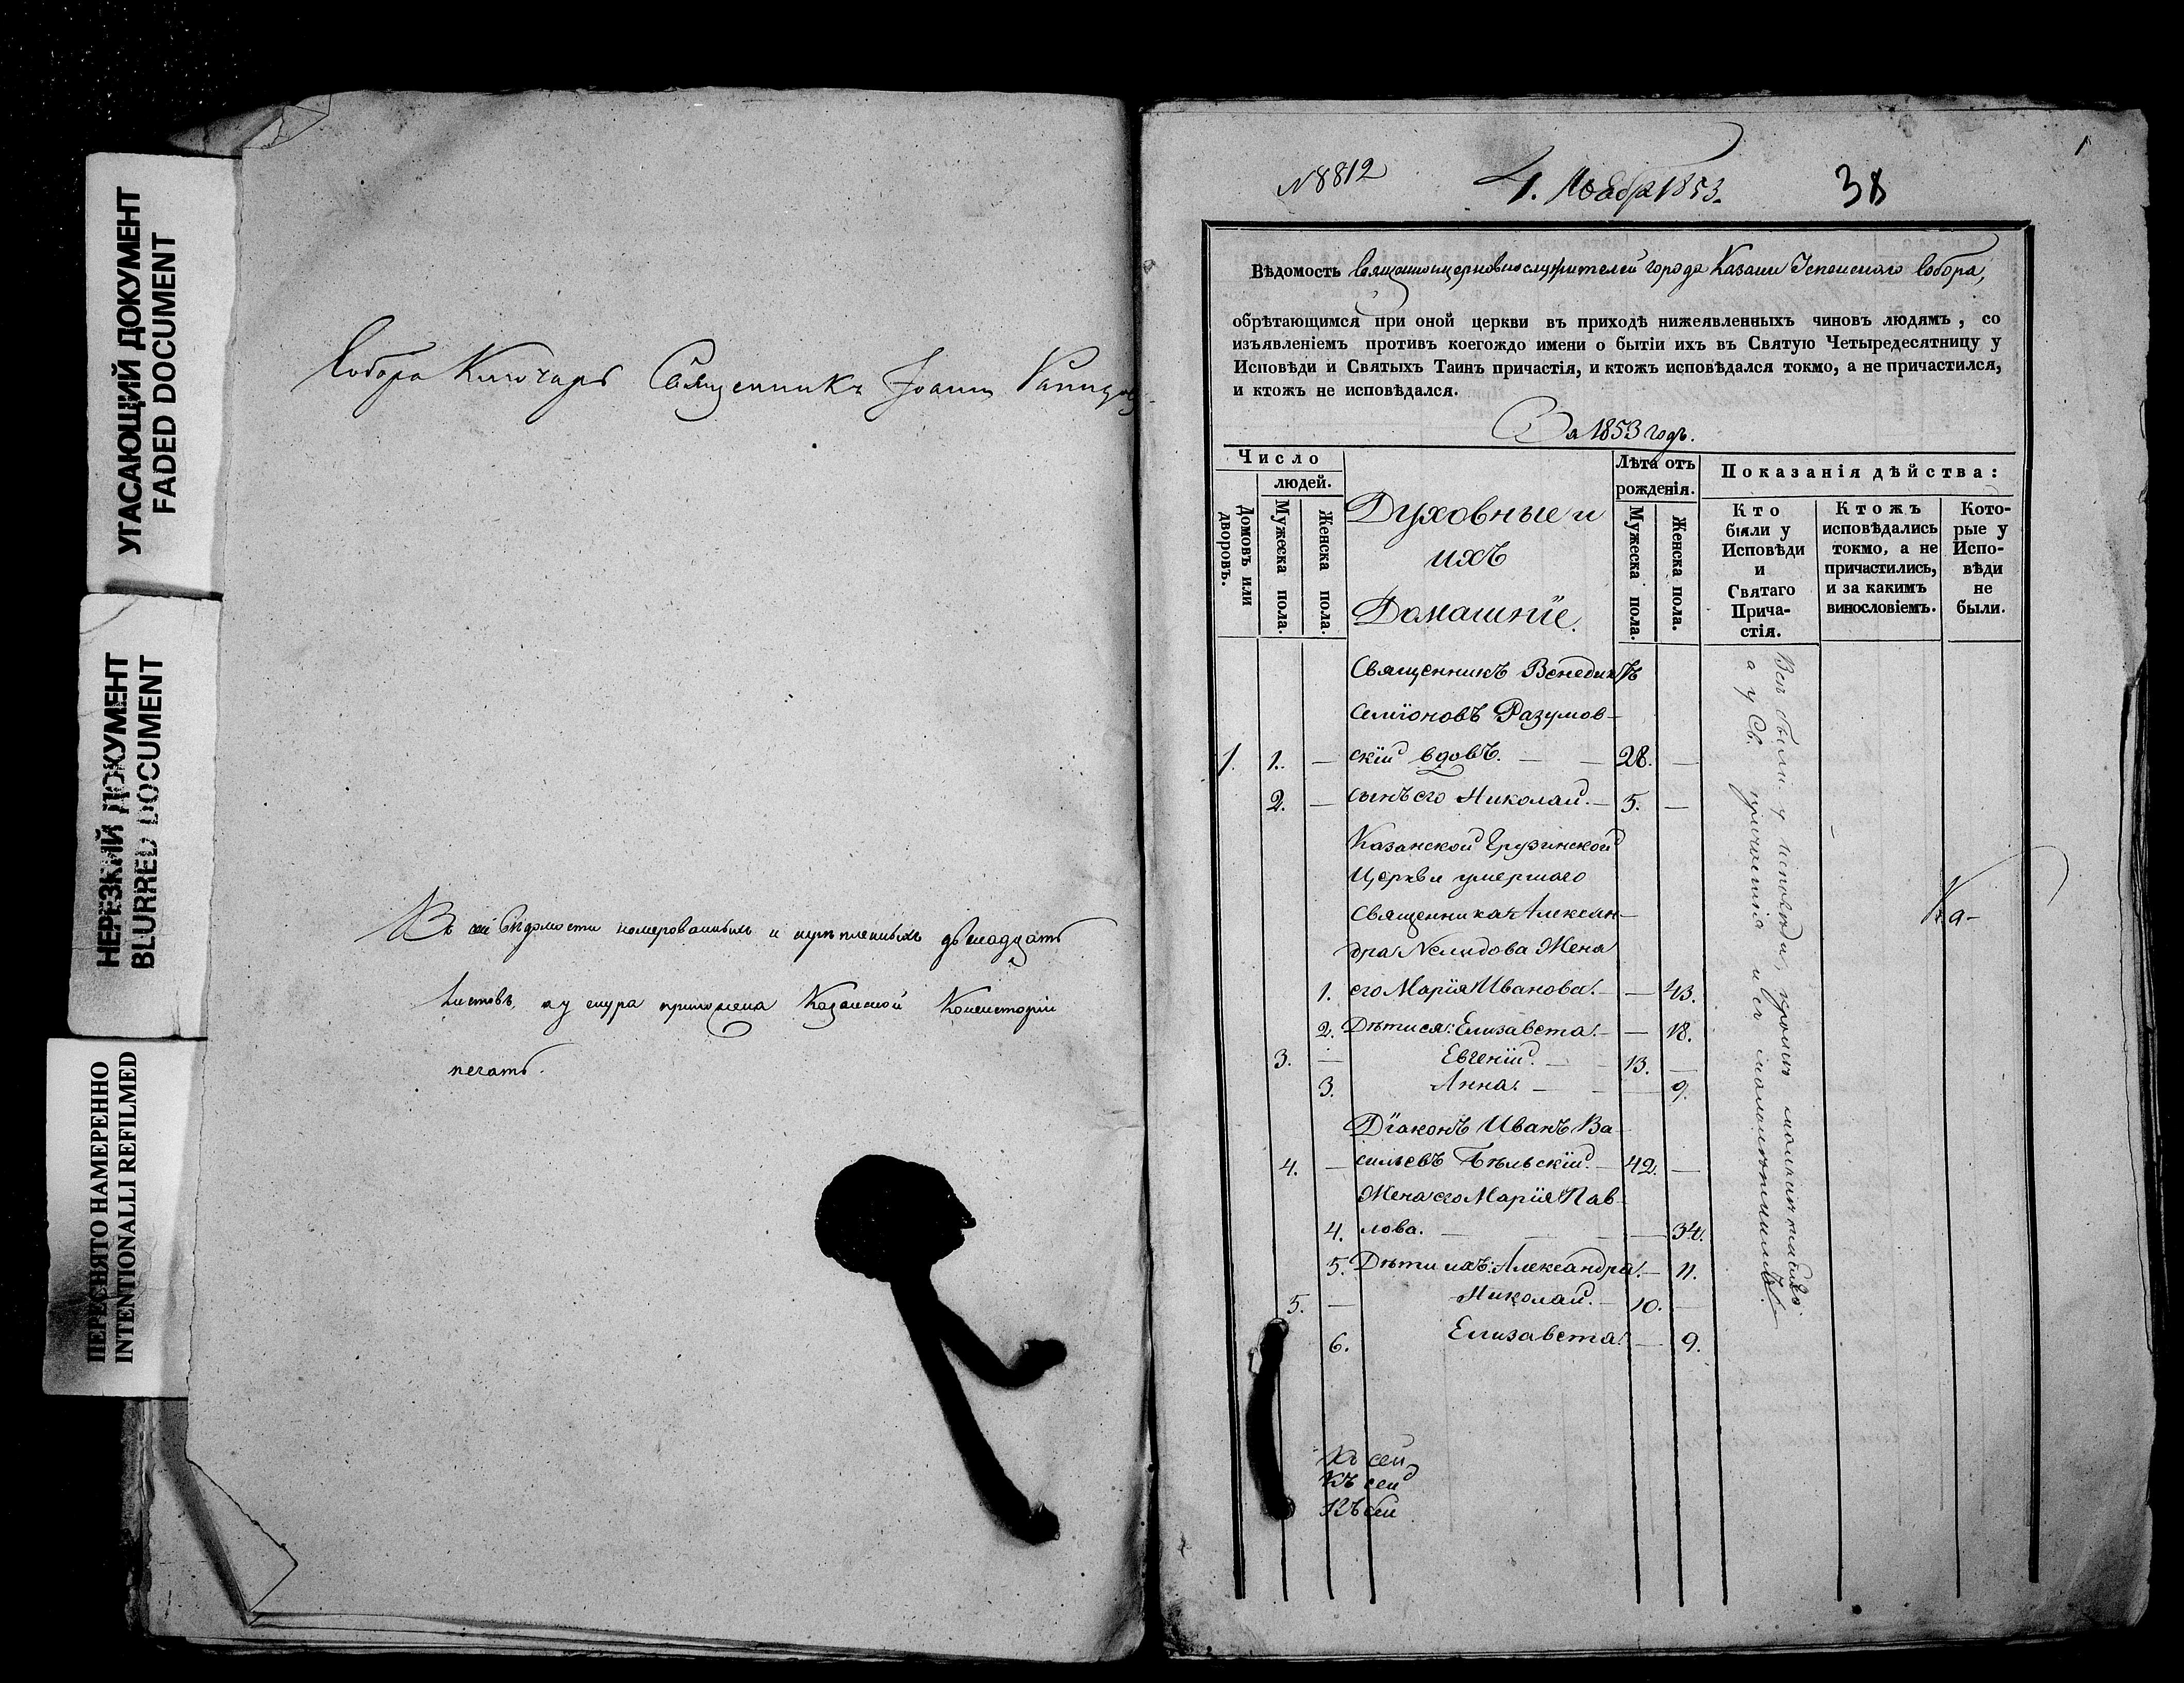 УГАСАЮЩИЙ ДОКУМЕНТ
FADED DOCUMENT
НЕРЕЗКИЙ ДОКУМЕНТ
BLURRED DOCUMENT
ПЕРЕСНЯТО НАМЕРЕННО
INTENTIONALLI REFILMED
Собора Ключарь Священникъ Іоаннъ
Въ сей вѣдомости номерованныхъ и скрѣпленныхъ двенадцать
листовъ, а у снура приложена Казанской Консисторіи
печать.
1
N 8812
4. Ноября 1853.
38
Вѣдомость Священноцерковнослужителей города Казани Успенскаго Собора,
обрѣтающимся при оной церкви въ приходѣ нижеявленныхъ чиновъ людямъ, со
изъявленіемъ противъ коегождо имени о бытіи ихъ въ Святую Четыредесятницу у
Исповѣди и Святыхъ Таинъ причастія, и ктожъ исповѣдался токмо, а не причастился,
и ктожъ не исповѣдался.
За 1853 годъ.
Число
людей.
Домовъ или дворовъ.
Мужеска пола.
Женска пола.
Духовные и
ихъ
Домашніе.
Лѣта отъ
рожденія.
Мужеска пола.
Женска пола.
Показанія дѣйства:
Кто
были у
Исповѣди
и
Святаго
Прича-
стія.
Ктожъ
исповѣдались
токмо, а не
причастились,
и за какимъ
винословіемъ.
Кото-
рые у
Испо-
вѣди
не
были.
Священникъ Венедиктъ
Симіоновъ Разумов-
1. 1. — скій вдовъ. — — 28. —
2. — сынъ его Николай. — 5. —
Казанской Грузинской
Церкви умершаго
Священника Алексан-
дра Нелидова Жена
1. его Марія Иванова. — 43.
2. Дѣти ея: Елизавета. — — 18.
3. — Евгеній. — 13. —
3. Анна. — — 9.
Діаконъ Иванъ Ва-
4. — сильевъ Бѣльскій. — 42. —
Жена его Марія Пав-
4. лова. — — 34.
5. Дѣти ихъ: Александра. — 11.
5. — Николай. — 10. —
6. Елизавета. — 9.
Всѣ были у исповѣди, кромѣ
а у Св. причастія и всѣ
Ка-
Къ сей
Къ сей
Къ сей